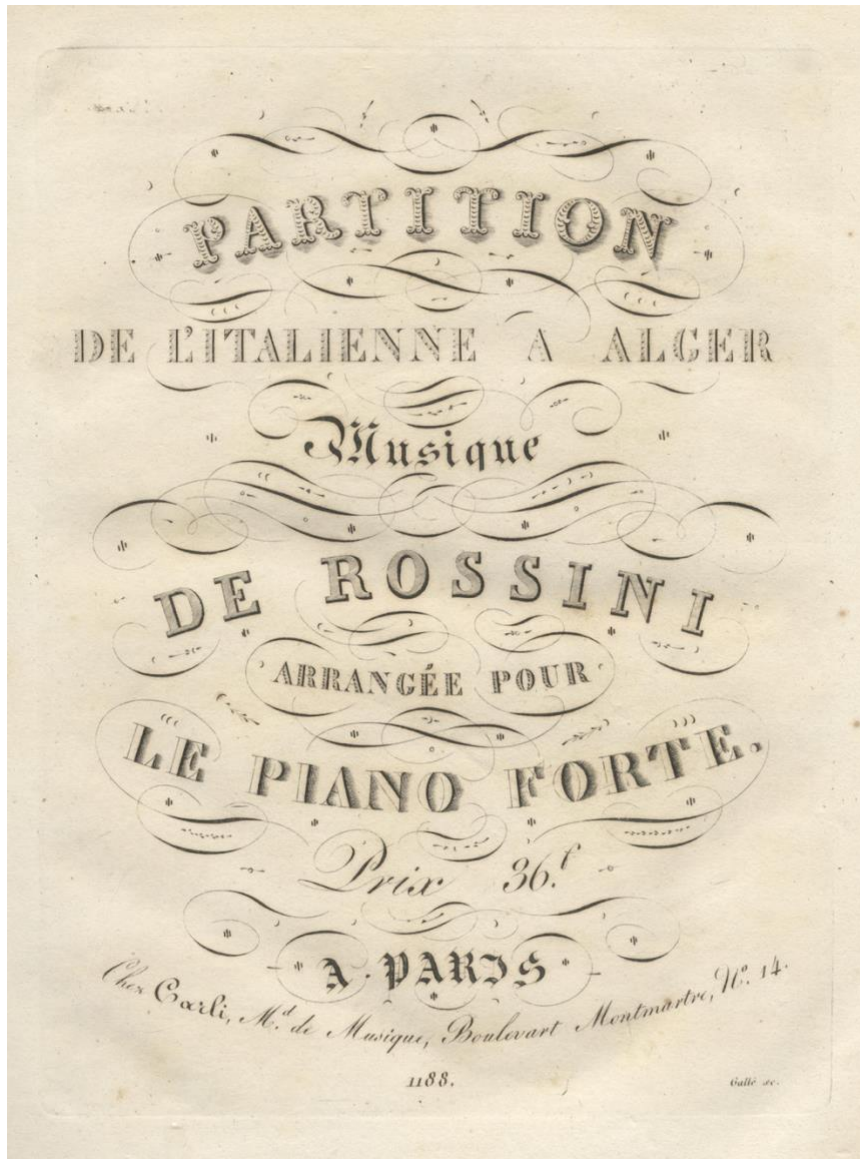 PARTITION
DE L'ITALIENNE A ALGER
Musique
DE ROSSINI
ARRANGÉE POUR
LE PIANO FORTE.
Prix 36.f
A. PARIS
Chez Carli, M.d de Musique, Boulevart Montmartre, N.o 14.
1188.
Gallé sc.